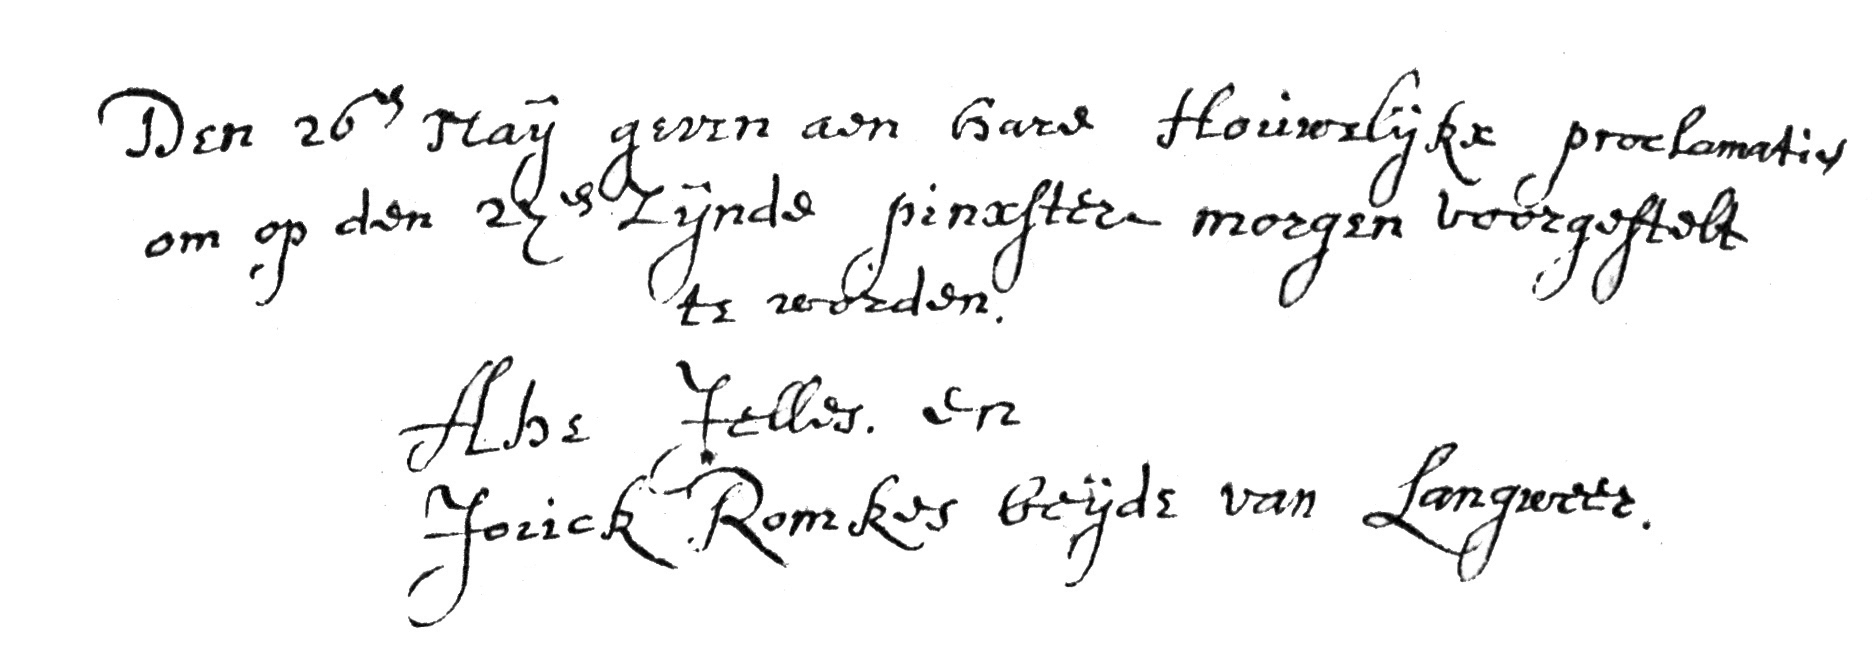 Den 26en Maÿ geven aen hare Houwelÿke proclamatie
om op den 27en Zÿnde pinxster morgen voorgestelt
te worden.
Abe Jelles. en
Jorick Romkes beÿde van Langweer.